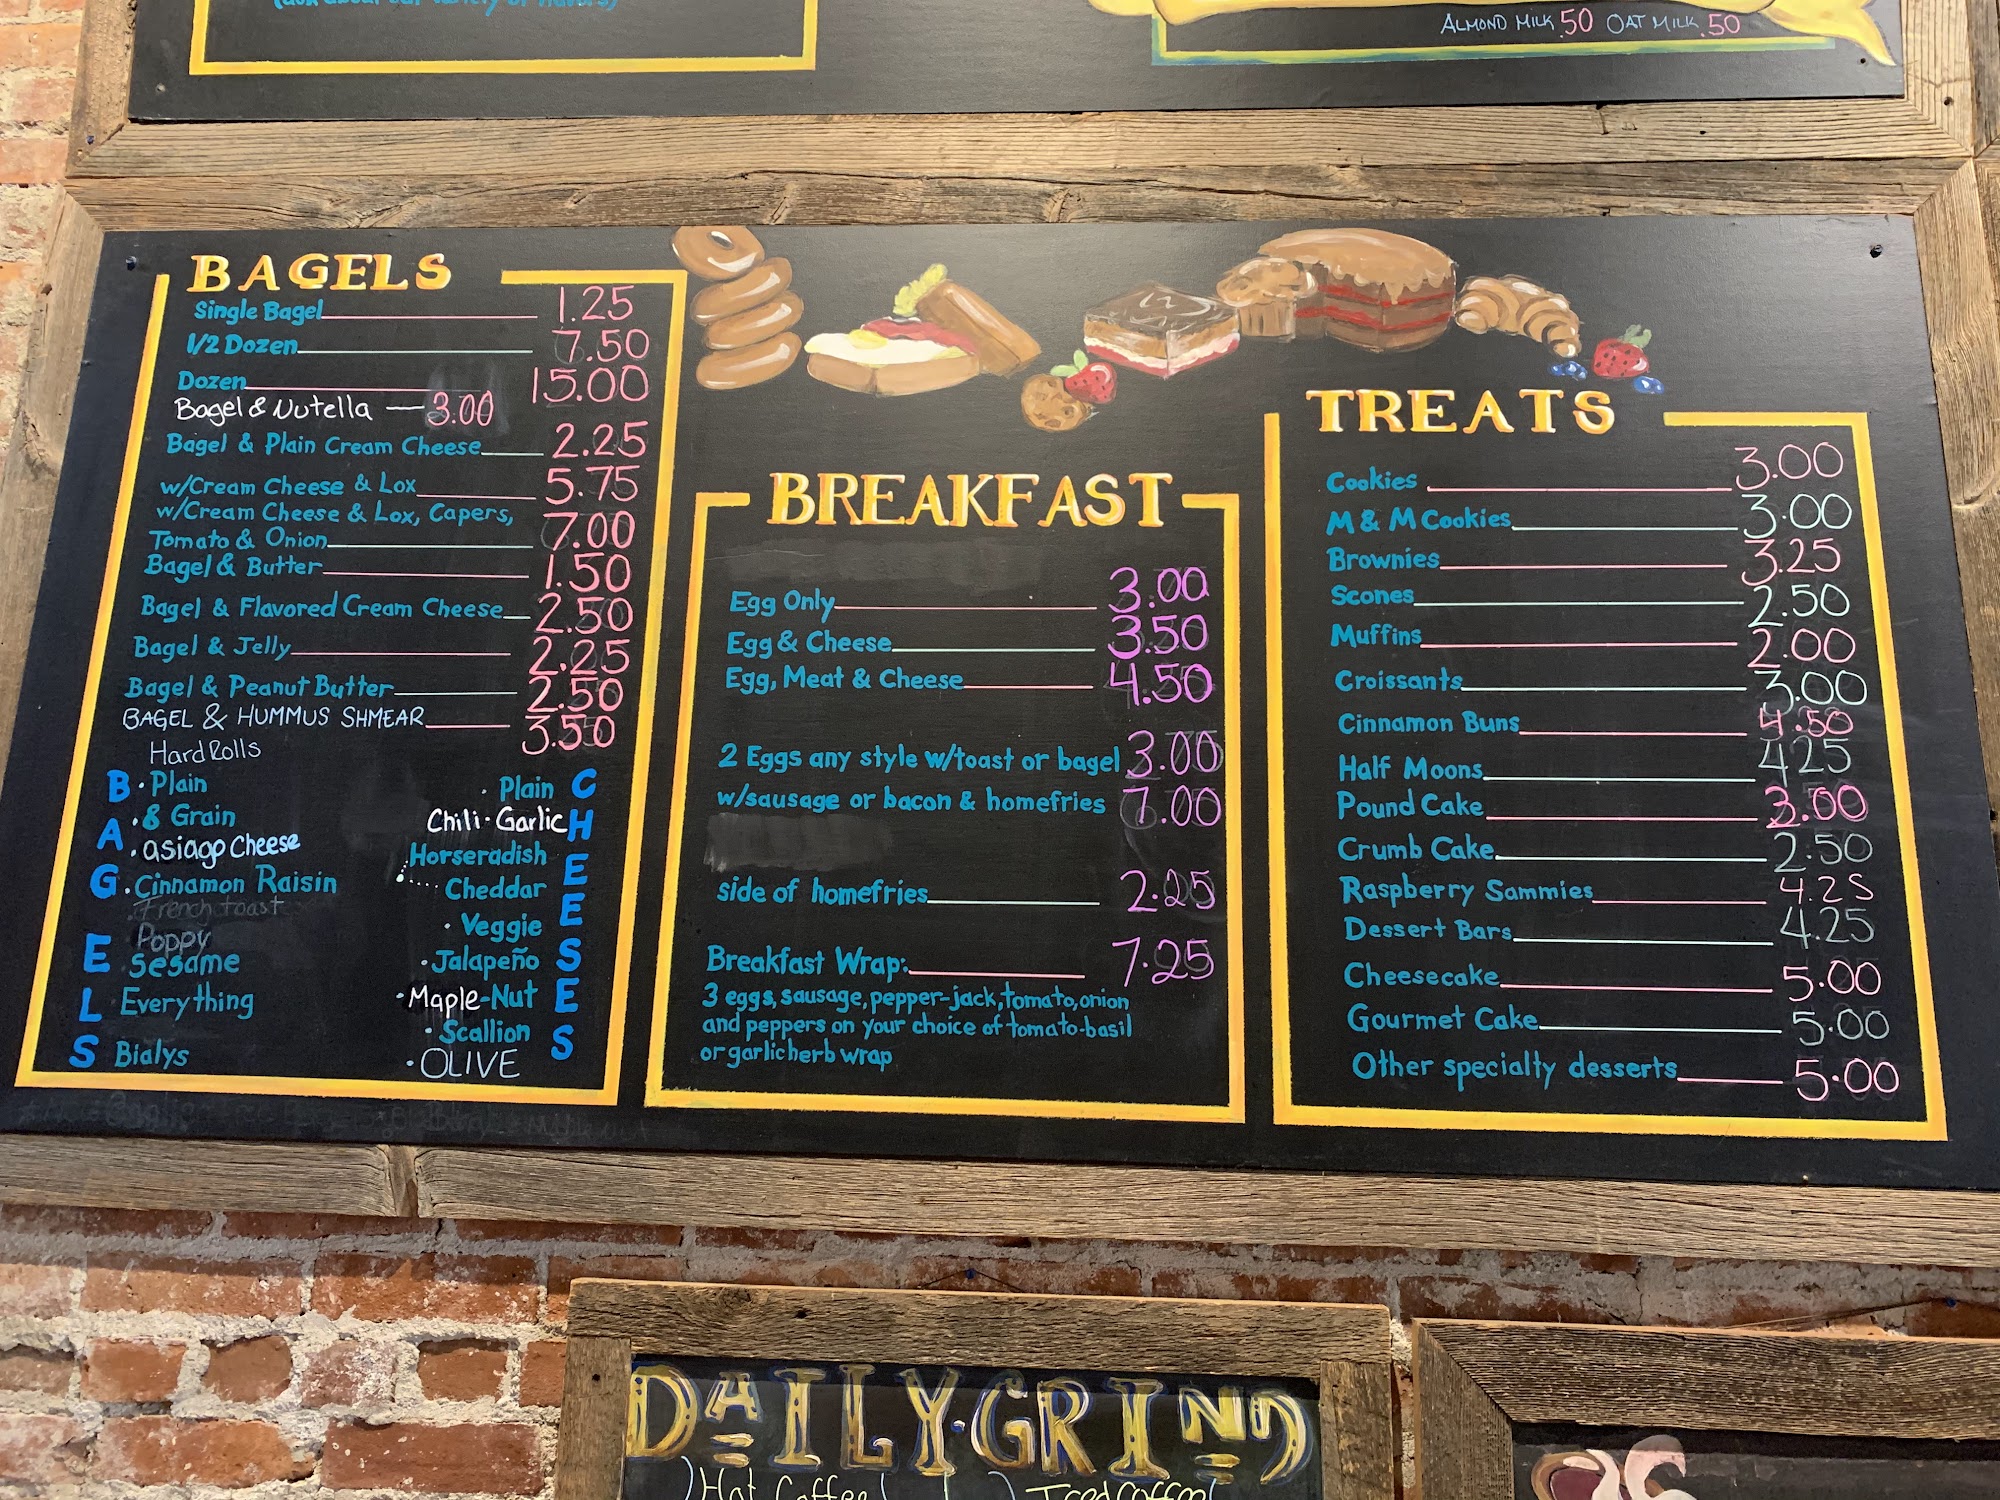 (ask about our variety of flavors)
ALMOND MILK .50 OAT MILK .50
BAGELS
Single Bagel 1.25
1/2 Dozen 7.50
Dozen 15.00
Bagel & Nutella — 3.00
Bagel & Plain Cream Cheese 2.25
w/Cream Cheese & Lox 5.75
w/Cream Cheese & Lox, Capers,
Tomato & Onion 7.00
Bagel & Butter 1.50
Bagel & Flavored Cream Cheese 2.50
Bagel & Jelly 2.25
Bagel & Peanut Butter 2.50
BAGEL & HUMMUS SHMEAR 3.50
Hard Rolls
BAGELS
· Plain
· 8 Grain
· asiago Cheese
· Cinnamon Raisin
· French toast
· Poppy
· Sesame
Everything
Bialys
CHEESES
· Plain
Chili · Garlic
Horseradish
Cheddar
· Veggie
· Jalapeño
· Maple-Nut
· Scallion
· OLIVE
BREAKFAST
Egg Only 3.00
Egg & Cheese 3.50
Egg, Meat & Cheese 4.50
2 Eggs any style w/toast or bagel 3.00
w/sausage or bacon & homefries 7.00
side of homefries 2.25
Breakfast Wrap: 7.25
3 eggs, sausage, pepper-jack, tomato, onion
and peppers on your choice of tomato-basil
or garlic herb wrap
TREATS
Cookies 3.00
M & M Cookies 3.00
Brownies 3.25
Scones 2.50
Muffins 2.00
Croissants 3.00
Cinnamon Buns 4.50
Half Moons 4.25
Pound Cake 3.00
Crumb Cake 2.50
Raspberry Sammies 4.25
Dessert Bars 4.25
Cheesecake 5.00
Gourmet Cake 5.00
Other specialty desserts 5.00
DAILY · GRIND
Hot Coffee
Iced Coffee